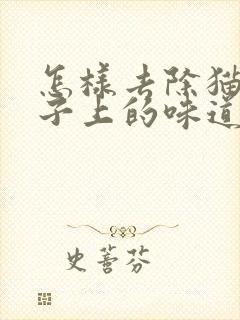 怎樣去除猫
子上的味道
史蓍芬